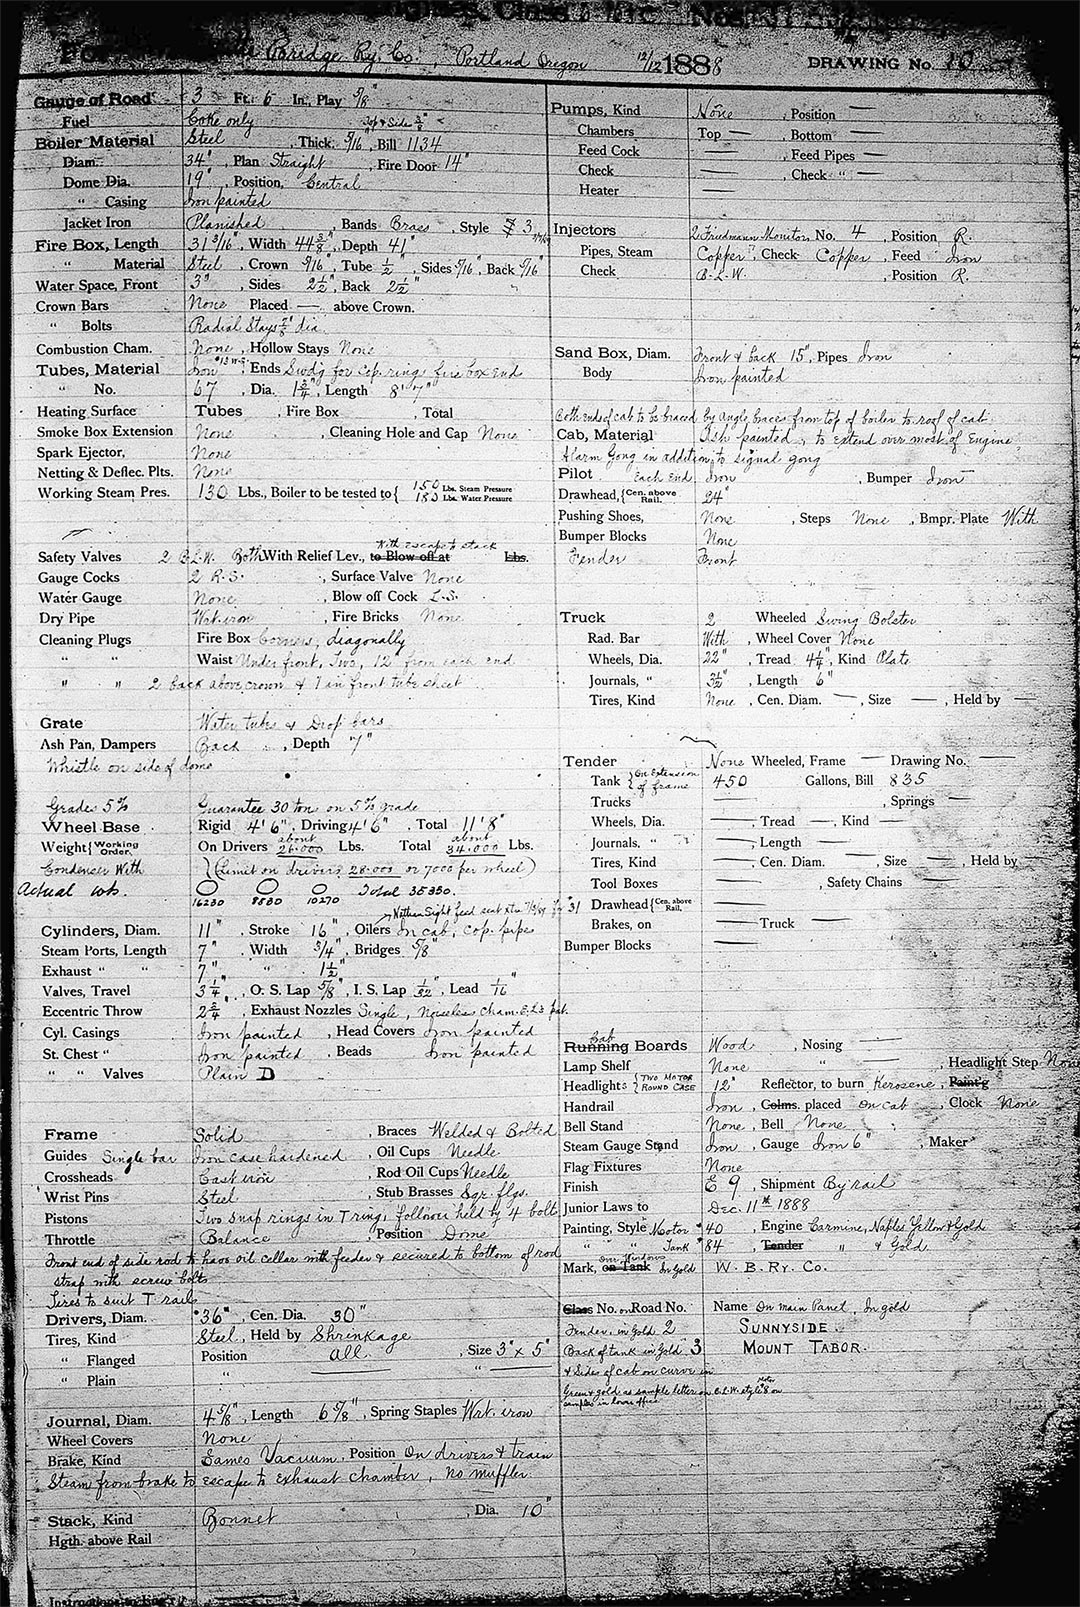 Bridge Ry. Co., Portland Oregon 12/12 1888 DRAWING No. 10
Gauge of Road 3 Ft. 6 In., Play 5/8"
Fuel Coke only Top & Side 3/8"
Boiler Material Steel , Thick. 5/16", Bill 1134
Diam. 34", Plan Straight , Fire Door 14"
Dome Dia. 19", Position, Central
" Casing Iron painted
Jacket Iron Planished , Bands Brass , Style 3
Fire Box, Length 31 3/16", Width 44 3/8", Depth 41"
" Material Steel , Crown 5/16", Tube 1/2", Sides 5/16", Back 5/16"
Water Space, Front 3" , Sides 2 1/2", Back 2 1/2"
Crown Bars None Placed — above Crown.
" Bolts Radial Stays 7/8" dia.
Combustion Cham. None , Hollow Stays None
Tubes, Material Iron , Ends Swdg for cop. rings fire box end
" No. 67 , Dia. 1 3/4", Length 8' 7"
Heating Surface Tubes , Fire Box , Total
Smoke Box Extension None , Cleaning Hole and Cap None
Spark Ejector, None
Netting & Deflec. Plts. None
Working Steam Pres. 130 Lbs., Boiler to be tested to { 150 Lbs. Steam Pressure
183 Lbs. Water Pressure
With escape to stack
Safety Valves 2 B.L.W. Both With Relief Lev., to Blow off at Lbs.
Gauge Cocks 2 R.S. , Surface Valve None
Water Gauge None , Blow off Cock L.S.
Dry Pipe Wrt. iron , Fire Bricks None
Cleaning Plugs Fire Box Corners, diagonally
" " Waist Under front, Two, 12" from each end
" " 2 back above crown & 1 in front tube sheet
Grate Water tubes & Drop bars
Ash Pan, Dampers Back , Depth 7"
Whistle on side of dome
Grades 5% Guarantee 30 tons on 5% grade
Wheel Base Rigid 4' 6", Driving 4' 6" , Total 11' 8"
Weight { Working Order. On Drivers about 26.000 Lbs. Total about 34.000 Lbs.
Condenser With (Limit on drivers 28.000 or 7000 per wheel)
Actual wts. 16230 8830 10270 Total 35350.
Nathan Sight feed
Cylinders, Diam. 11" , Stroke 16", Oilers In cab, cop. pipes
Steam Ports, Length 7" , Width 3/4", Bridges 5/8"
Exhaust " " 7" " 1 1/2"
Valves, Travel 3 1/4", O. S. Lap 5/8", I. S. Lap 1/32", Lead 1/16"
Eccentric Throw 2 3/4", Exhaust Nozzles Single, Noiseless Cham.
Cyl. Casings Iron painted , Head Covers Iron painted
St. Chest " Iron painted , Beads Iron painted
" " Valves Plain D
Frame Solid , Braces Welded & Bolted
Guides Single bar Iron case hardened , Oil Cups Needle
Crossheads Cast iron , Rod Oil Cups Needle
Wrist Pins Steel , Stub Brasses Sqr. flgs.
Pistons Two snap rings in T ring, follower held by 4 bolts
Throttle Balance , Position Dome
Front end of side rod to have oil cellar with feeder & secured to bottom of rod
strap with screw bolts
Tires to suit T rails
Drivers, Diam. 36", Cen. Dia. 30"
Tires, Kind Steel, Held by Shrinkage
" Flanged Position all , Size 3" x 5"
" Plain " — " —
Journal, Diam. 4 5/8", Length 6 7/8", Spring Staples Wrt. iron
Wheel Covers None
Brake, Kind Eames Vacuum, Position On drivers & train
Steam from brake to escape to exhaust chamber, no muffler.
Stack, Kind Bonnet , Dia. 10"
Hgth. above Rail
Pumps, Kind None , Position —
Chambers Top — , Bottom —
Feed Cock — , Feed Pipes —
Check — , Check " —
Heater —
Injectors 2 Friedmann Monitor No. 4 , Position R.
Pipes, Steam Copper, Check Copper , Feed Iron
Check B.L.W. , Position R.
Sand Box, Diam. Front & back 15", Pipes Iron
Body Iron painted
Both ends of cab to be braced by angle braces from top of boiler to roof of cab
Cab, Material Ash painted, to extend over most of Engine
Alarm Gong in addition to signal gong
Pilot Each End Iron , Bumper Iron
Drawhead, { Cen. above Rail. 24"
Pushing Shoes, None , Steps None , Bmpr. Plate With
Bumper Blocks None
Fender Front
Truck 2 Wheeled Swing Bolster
Rad. Bar With , Wheel Cover None
Wheels, Dia. 22" , Tread 4 1/4", Kind Plate
Journals, " 3 1/2" , Length 6"
Tires, Kind None , Cen. Diam. — , Size — , Held by —
Tender None Wheeled, Frame — Drawing No. —
Tank { On Extension of frame 450 Gallons, Bill 835
Trucks — , Springs —
Wheels, Dia. — , Tread — , Kind —
Journals, " — , Length —
Tires, Kind — , Cen. Diam. — , Size — , Held by —
Tool Boxes — , Safety Chains —
Drawhead { Cen. above Rail, —
Brakes, on — Truck —
Bumper Blocks —
Cab
Running Boards Wood , Nosing —
Lamp Shelf None " — , Headlight Step None
Headlights { TWO MOTOR ROUND CASE 12" Reflector, to burn Kerosene , Paint'g
Handrail Iron , Colms. placed On cab , Clock None
Bell Stand None , Bell None
Steam Gauge Stand Iron , Gauge Iron 6" , Maker
Flag Fixtures None
Finish E 9 , Shipment By rail
Junior Laws to Dec. 11th 1888
Painting, Style Motor #40 , Engine Carmine, Naples Yellow & Gold
" " Tank #84 , Tender " & Gold
Mark, on Tank Over Windows In Gold W. B. RY. CO.
Class No. on Road No. Name On main Panel, In gold
Fender, in Gold 2 SUNNYSIDE.
Back of tank in Gold 3 MOUNT TABOR.
& Sides of cab on curve in
Green & gold as sample letter on B.L.W. style #8 on
samples in lower office